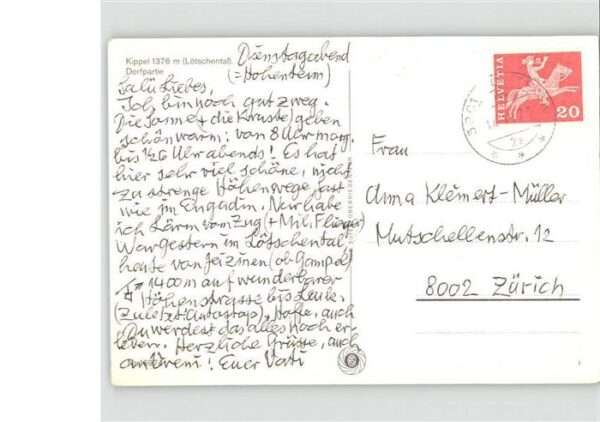 Kippel 1376 m (Lötschental)
Dorfpartie
Dienstagabend
(=Hohentenn)
Salü Liebes,
Ich bin noch gut zweg.
Die Sonne (+ die Kruste) geben
schön warm: von 8 Uhr morg.
bis ½6 Uhr abends! Es hat
hier sehr viel schöne, nicht
zu strenge Höhenwege, fast
wie im Engadin. Nur habe
ich Lärm vom Zug (+ Mil. Flieger)
War gestern im Lötschental,
heute von Jeizinen (ob Gampel)
1400 m auf wunderbarer
Höhenstrasse bis Leuk.
(Zuletzt: Autostop). Hoffe, auch
Du werdest das alles noch er-
leben. Herzliche Grüsse, auch
Euer Vati
HELVETIA
20
Frau
Anna Klemert-Müller
Mutschellenstr. 12
8002 Zürich